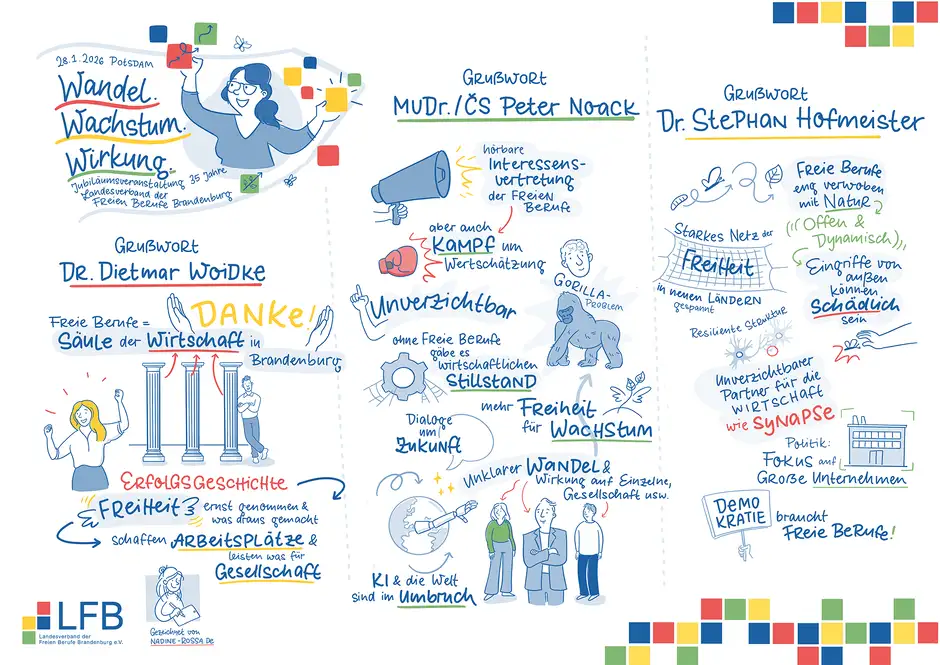 28.1.2026 POTSDAM
Wandel.
Wachstum.
Wirkung.
Jubiläumsveranstaltung 35 Jahre
Landesverband der
Freien Berufe Brandenburg
GRUßWORT
DR. Dietmar WOIDKE
DANKE!
Freie Berufe =
SÄULE der Wirtschaft in
Brandenburg
ERFOLGSGESCHICHTE
FREIHEIT
ernst genommen &
was draus gemacht
schaffen ARBEITSPLÄTZE &
leisten was für
Gesellschaft
LFB
Landesverband der
Freien Berufe Brandenburg e.V.
Gezeichnet von
NADINE-ROSSA.De
GRUßWORT
MUDr./ČS Peter Noack
hörbare
Interessens-
vertretung
der FREIEN
BERUFE
aber auch
KAMPF um
Wertschätzung
Unverzichtbar
GORILLA-
PROBLEM
ohne Freie Berufe
gäbe es
wirtschaftlichen
STILLSTAND
mehr FREIHEIT
für WACHSTUM
Dialoge
um
ZUKUNFT
Unklarer WANDEL &
Wirkung auf Einzelne,
Gesellschaft usw.
KI & die Welt
sind im Umbruch
GRUßWORT
Dr. Stephan Hofmeister
Freie Berufe
eng verwoben
mit NATUR
((Offen &
Dynamisch))
Starkes Netz der
FREIHEIT
in neuen LÄNDERN
gespannt
Eingriffe von
außen
können
SCHÄDLICH
sein
Resiliente Struktur
Unverzichtbarer
Partner für die
WIRTSCHAFT
wie SYNAPSE
Politik:
FOKUS auf
GROßE UNTERNEHMEN
DEMO
KRATIE
braucht
FREIE BERUFE!